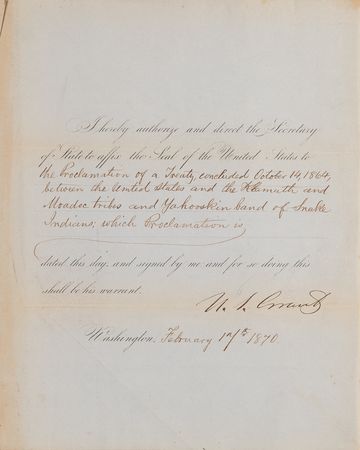 I hereby authorize and direct the Secretary
of State to affix the Seal of the United States to
the Proclamation of a Treaty, concluded October 14, 1864,
between the United States and the Klamath and
Moadoc tribes and Yahooskin band of Snake
Indians; which Proclamation is
dated this day, and signed by me: and for so doing this
shall be his warrant.
U. S. Grant
Washington, February 17th 1870.